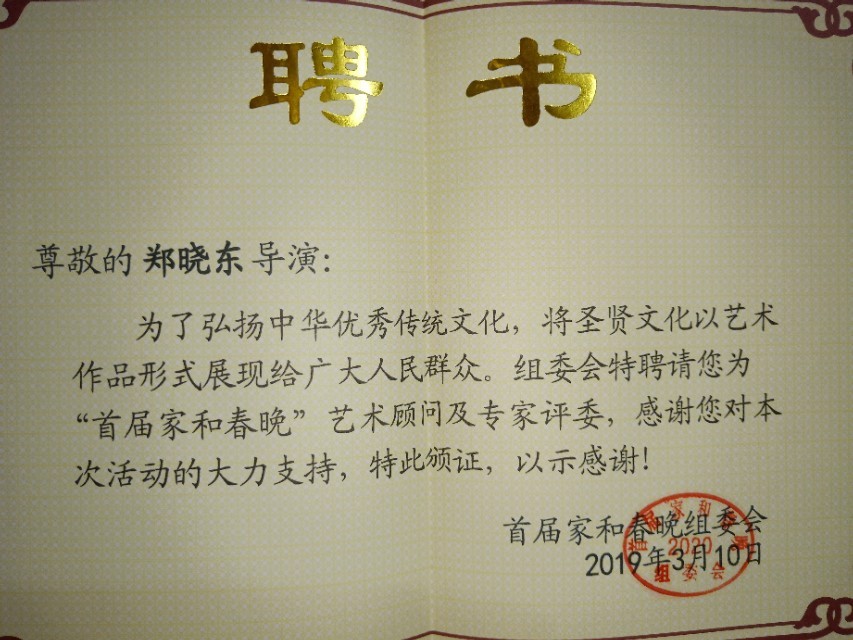 聘书
尊敬的 郑晓东 导演：
为了弘扬中华优秀传统文化，将圣贤文化以艺术
作品形式展现给广大人民群众。组委会特聘请您为
“首届家和春晚”艺术顾问及专家评委，感谢您对本
次活动的大力支持，特此颁证，以示感谢！
首届家和春晚组委会
2019年3月10日
首届家和
2020
组委会